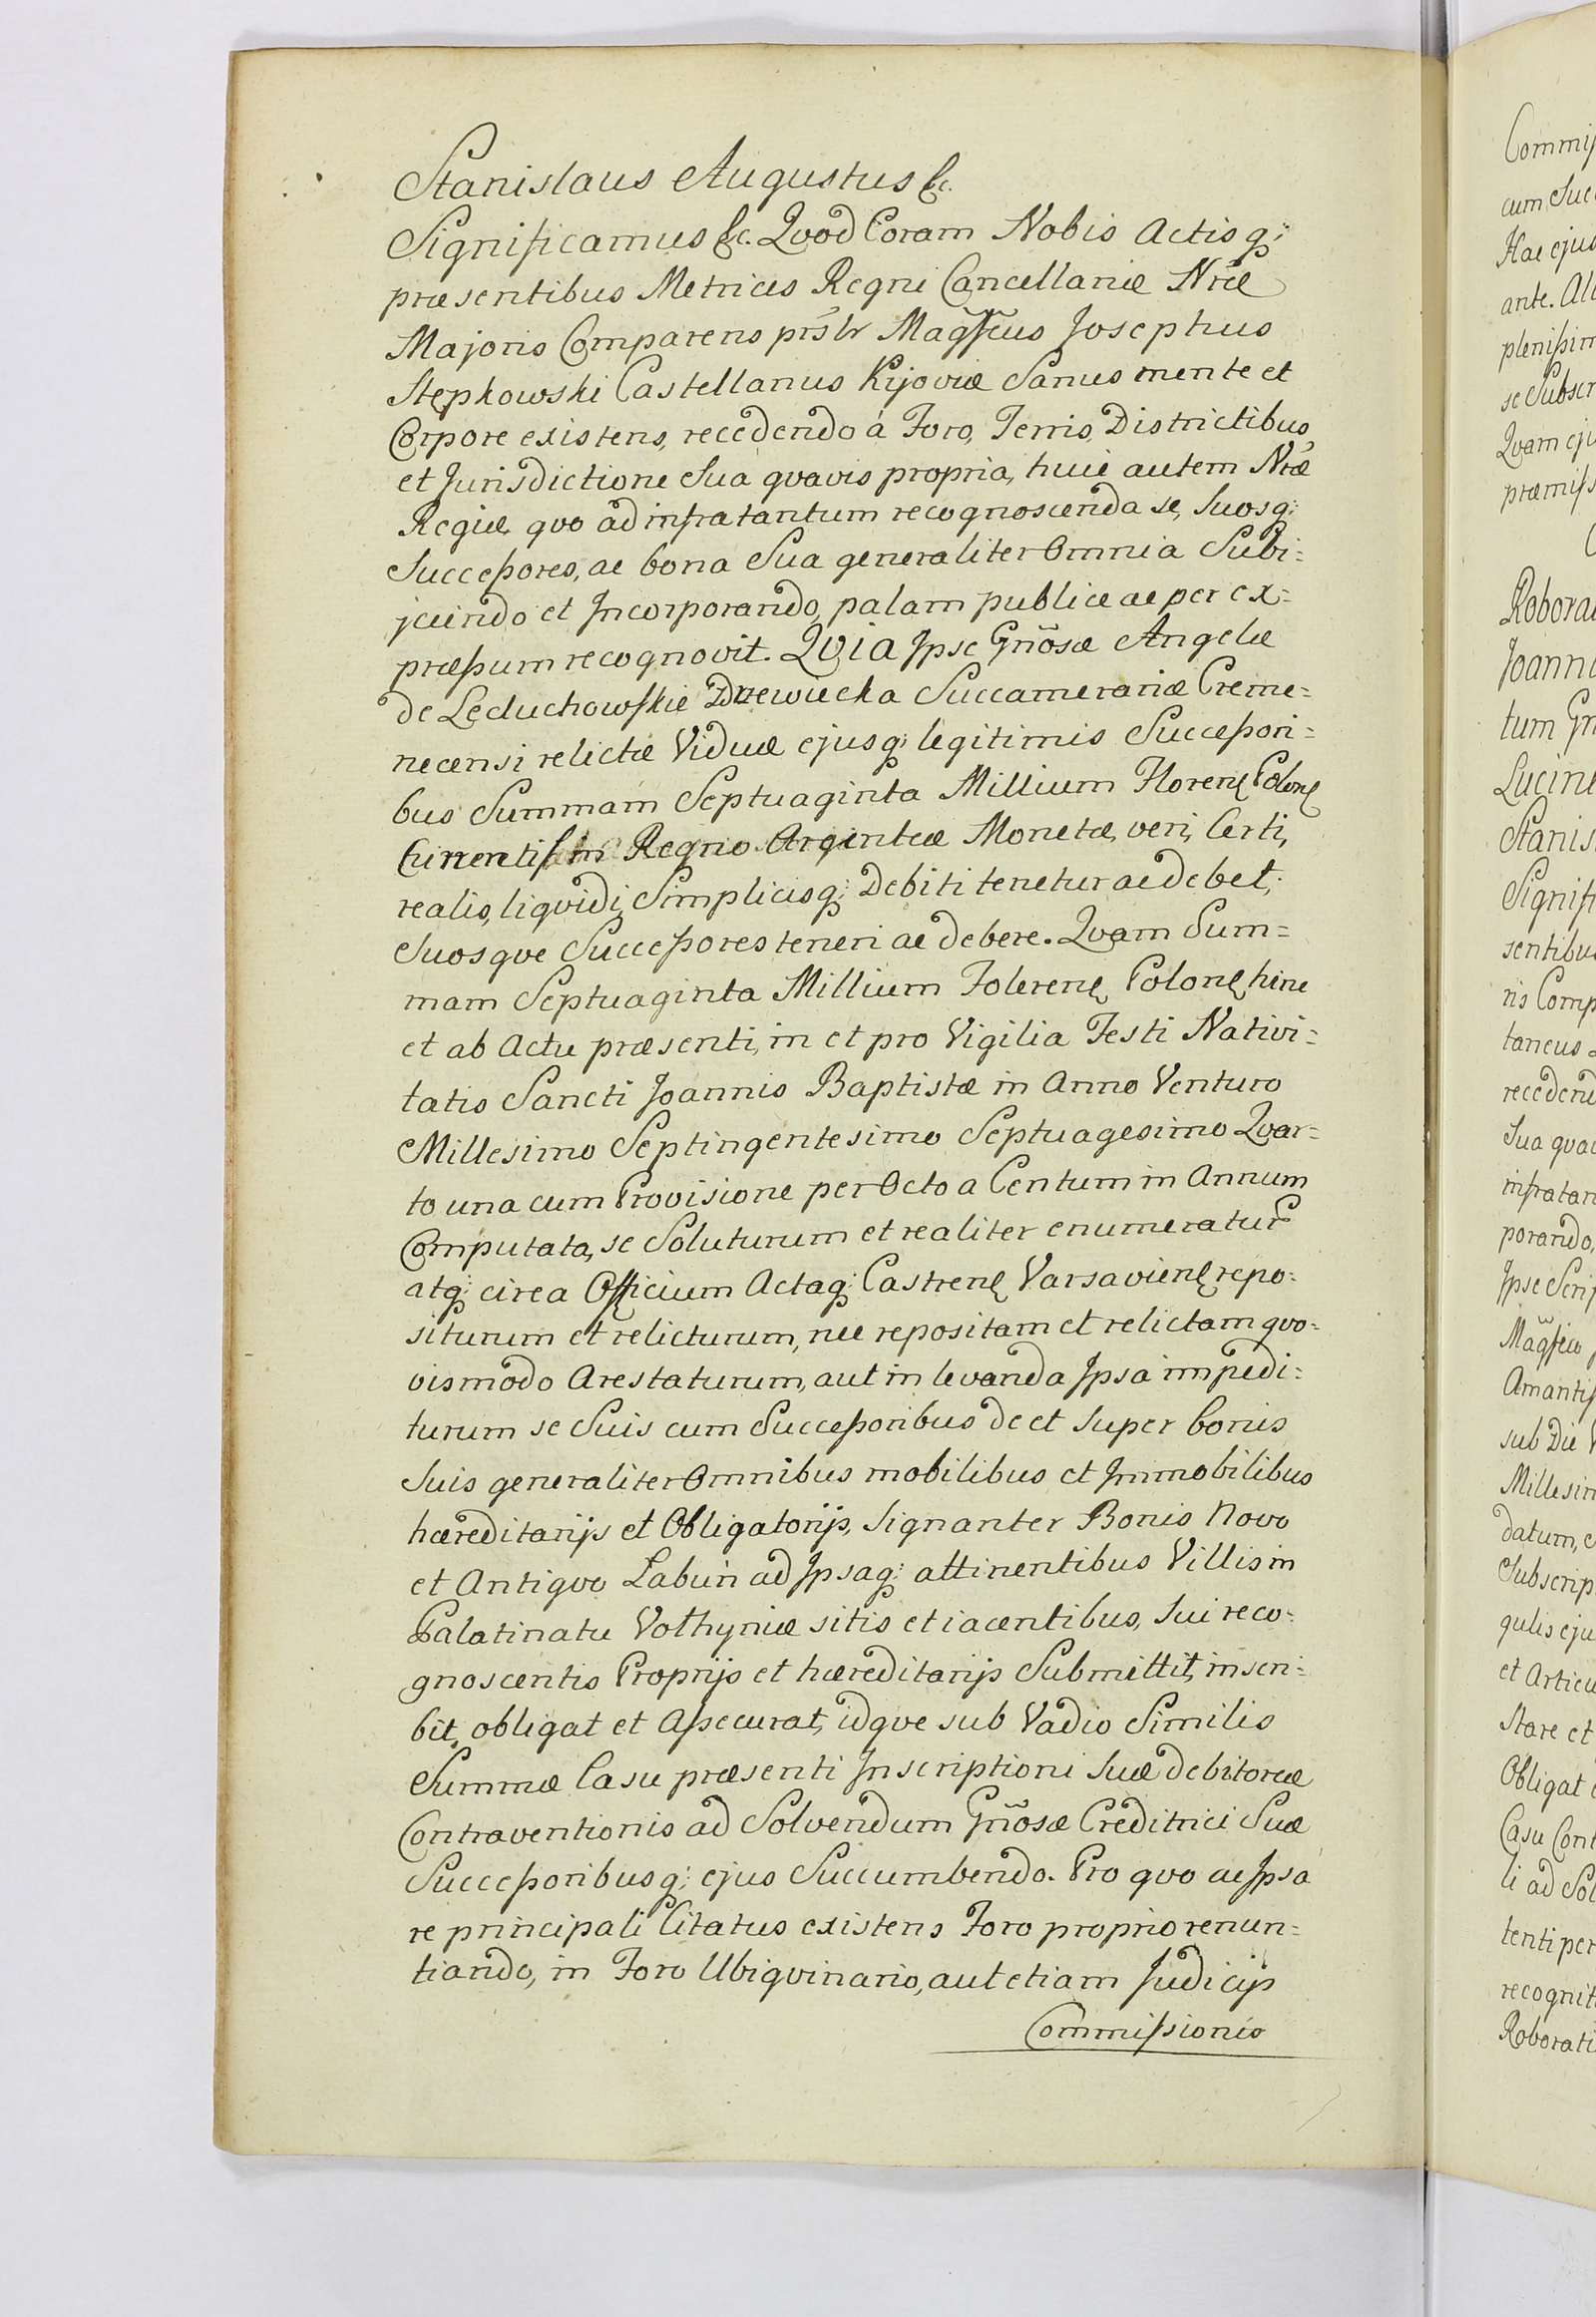 Stanislaus Augustus &c.
Significamus &c. Qvod Coram Nobis Actisq;
præsentibus Metrices Regni Cancellariæ Nræ
Majoris Comparens prslr Magficus Josephus
Stępkowski Castellanus Kijoviæ Sanus mente et
Corpore existens, recedendo á Foro, Terris, Districtibus,
et Jurisdictione Sua qvavis propria, huic autem Nræ
Regiæ qvo ad infratantum recognoscenda se, Suosq;
Successores, ac bona Sua generaliter Omnia Subi=
jciendo et Incorporando, palam publice ac per ex=
præssum recognovit. QVIA Ipse Gnosæ Angelæ
de Leduchowskie Drzewiecka Succamerariæ Creme=
necensi relictæ Viduæ ejusq; legitimis Successori=
bus Summam Septuaginta Millium Floren Polon
Currentis in Regno Argenteæ Monetæ, veri, Certi,
realis, liqvidi, Simplicisq; Debiti tenetur ac debet,
Suosqve Successores teneri ac debere. Qvam Sum=
mam Septuaginta Millium Foleren Polon hinc
et ab Actu præsenti, in et pro Vigilia Festi Nativi=
tatis Sancti Joannis Baptistæ in Anno Venturo
Millesimo Septingentesimo Septuagesimo Qvar=
to una cum Provisione per Octo a Centum in Annum
Computata, se Soluturum et realiter enumeratur
atq; circa Officium Actaq; Castren Varsavien repo=
siturum et relicturum, nec repositam et relictam qvo=
vismodo Arestaturum, aut in levanda Ipsa impedi=
turum se Suis cum Successoribus de et super bonis
Suis generaliter Omnibus mobilibus et Immobilibus
hæreditarijs et Obligatorijs, Signanter Bonis Novo
et Antiqvo Labun ad Ipsaq; attinentibus Villis in
Palatinatu Volhyniæ sitis et iacentibus, Sui reco=
gnoscentis Proprijs et hæreditarijs Submittit, inscri=
bit, obligat et Assecurat, idqve sub Vadio Similis
Summæ Casu præsenti Inscriptioni Suæ debitoreæ
Contraventionis ad Solvendum Gnosæ Creditrici Suæ
Successoribusq; ejus Succumbendo. Pro qvo ac Ipsa
re principali Citatus existens Foro proprio renun=
tiando, in Foro Ubiqvinario, aut etiam Judicijs
Commissionis